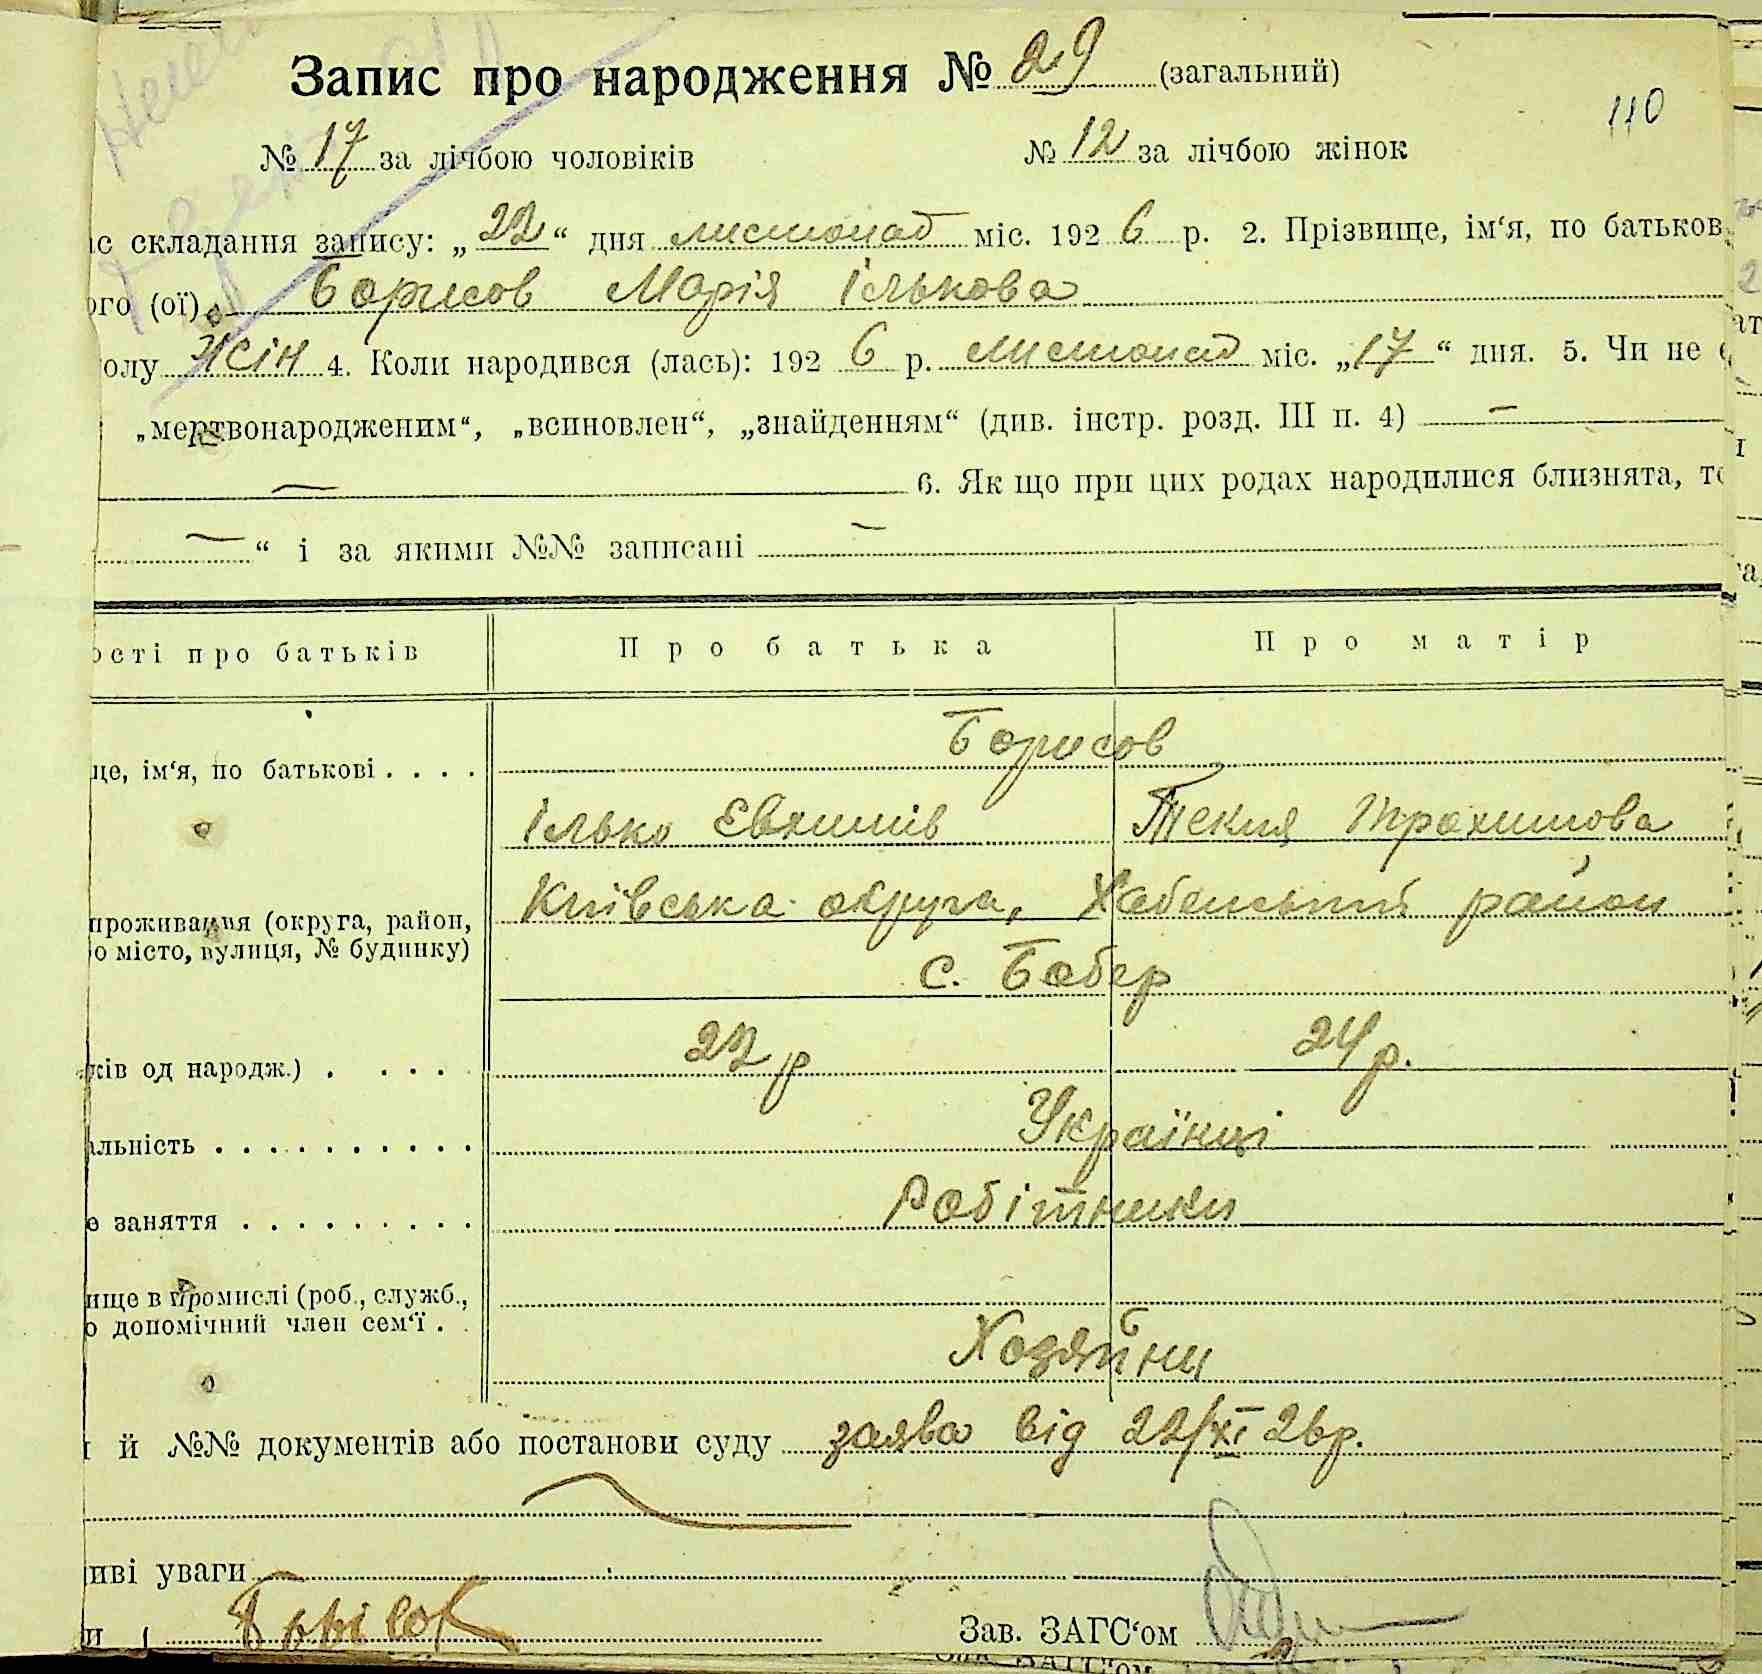 Запис про народження № 29 (загальний)
110
№ 17 за лічбою чоловіків № 12 за лічбою жінок
ас складання запису: „22“ дня листопад міс. 1926 р. 2. Прізвище, ім‘я, по батьков
ого (ої) Борисов Марія Ількова
олу жін 4. Коли народився (лась): 1926 р. листопад міс. „17“ дня. 5. Чи не є
„мертвонародженим“, „всиновлен“, „знайденням“ (див. інстр. розд. III п. 4) —
— 6. Як що при цих родах народилися близнята, то
— “ і за якими №№ записані —
ості про батьків Про батька Про матір
Борисов
ще, ім‘я, по батькові . . . .
Ілько Євхимів Текля Трохимова
Київська округа, Хабенський район
проживання (округа, район,
о місто, вулиця, № будинку)
с. Бобер
22 р 24 р.
ків од народж.) . . . . .
Українці
альність . . . . . . . . . .
Робітники
е заняття . . . . . . . . .
ище в промислі (роб., служб.,
о допомічний член сем‘ї . .
Хозяйни
й №№ документів або постанови суду заява від 22/XI 26р.
иві уваги
и Борісов Зав. ЗАГС‘ом